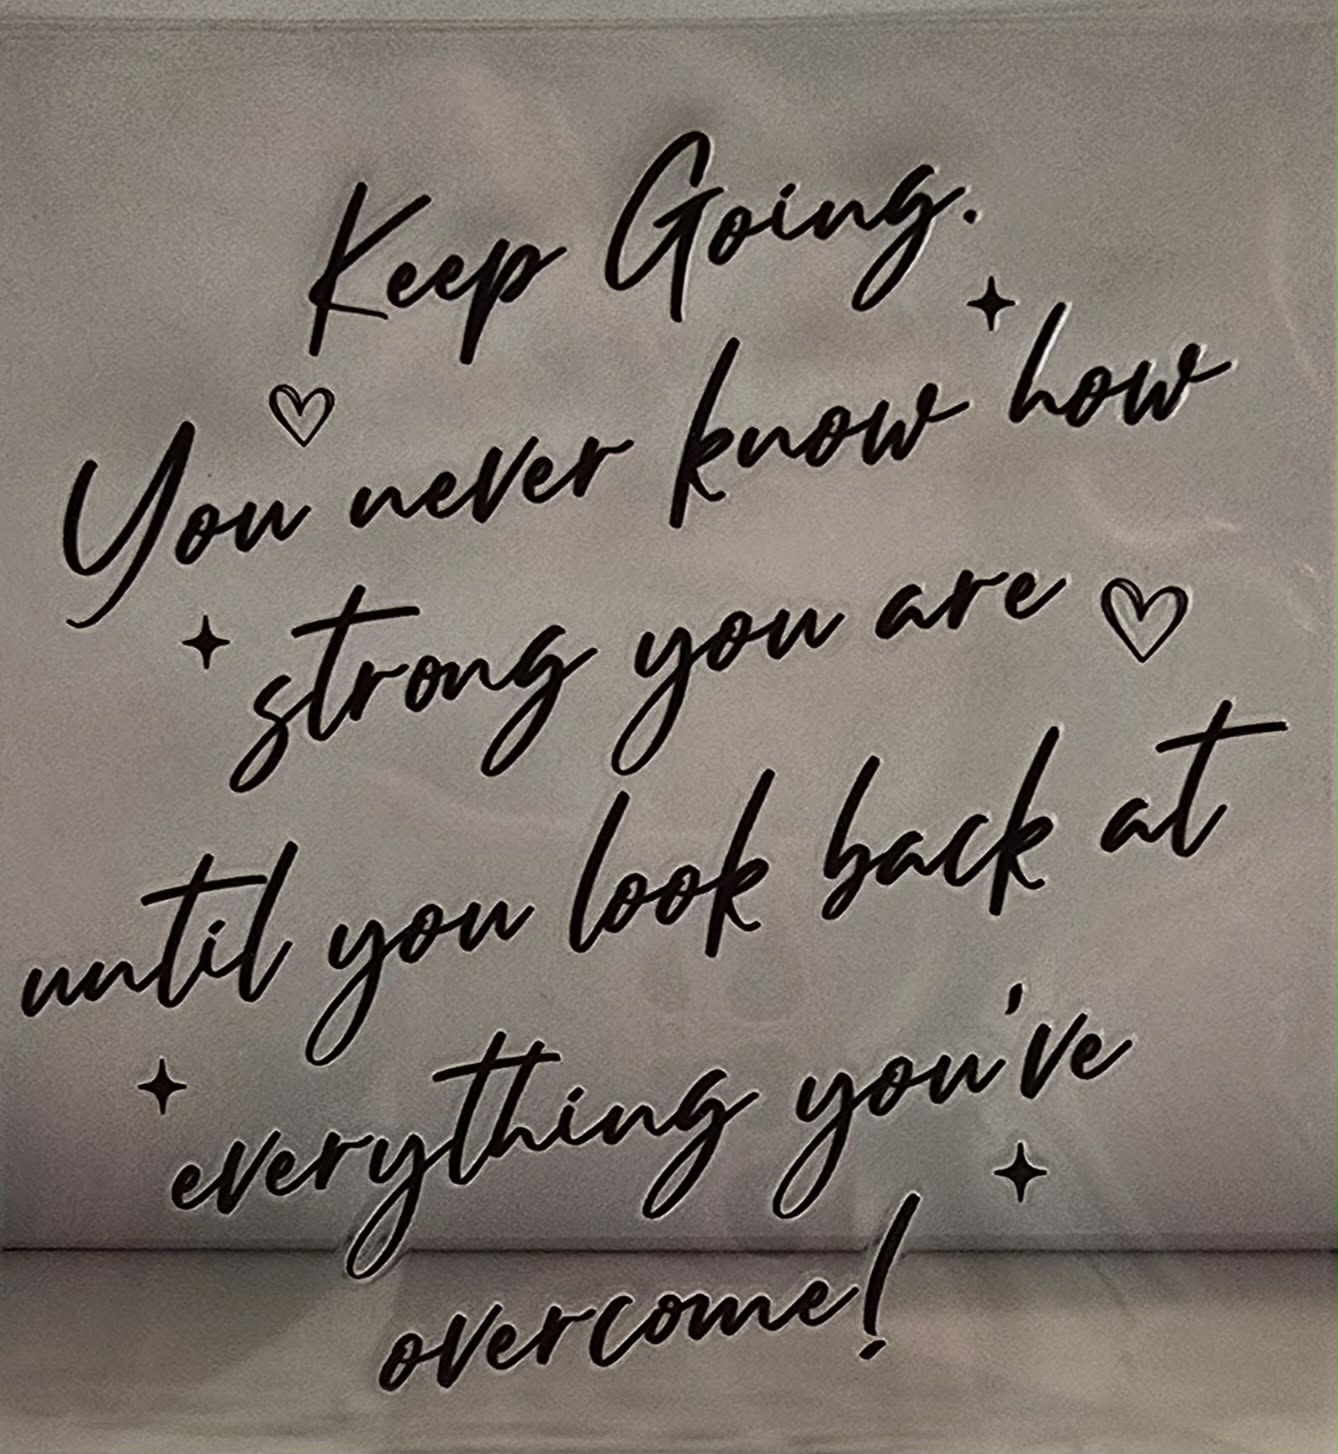 Keep Going.
You never know how
strong you are
until you look back at
everything you've
overcome!